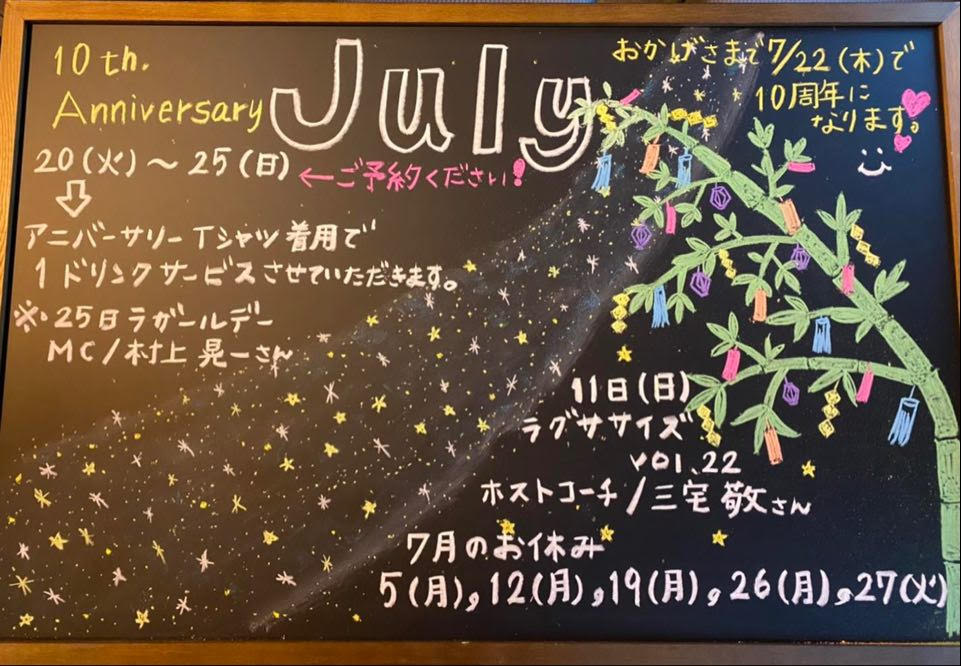 10th.
Anniversary
July
おかげさまで7/22(木)で
10周年に
なります。
20(火)～25(日)
←ご予約ください!
アニバーサリーTシャツ着用で
1ドリンクサービスさせていただきます。
※25日ラガールデー
MC/村上晃一さん
11日(日)
ラグササイズ
vol.22
ホストコーチ/三宅敬さん
7月のお休み
5(月),12(月),19(月),26(月),27(火)